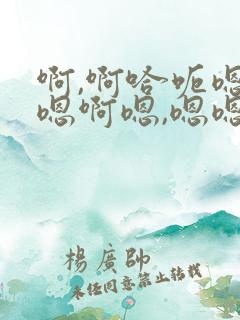 啊,啊哈呃嗯
嗯啊嗯,嗯嗯
楊廣帥
未经同意禁止转载